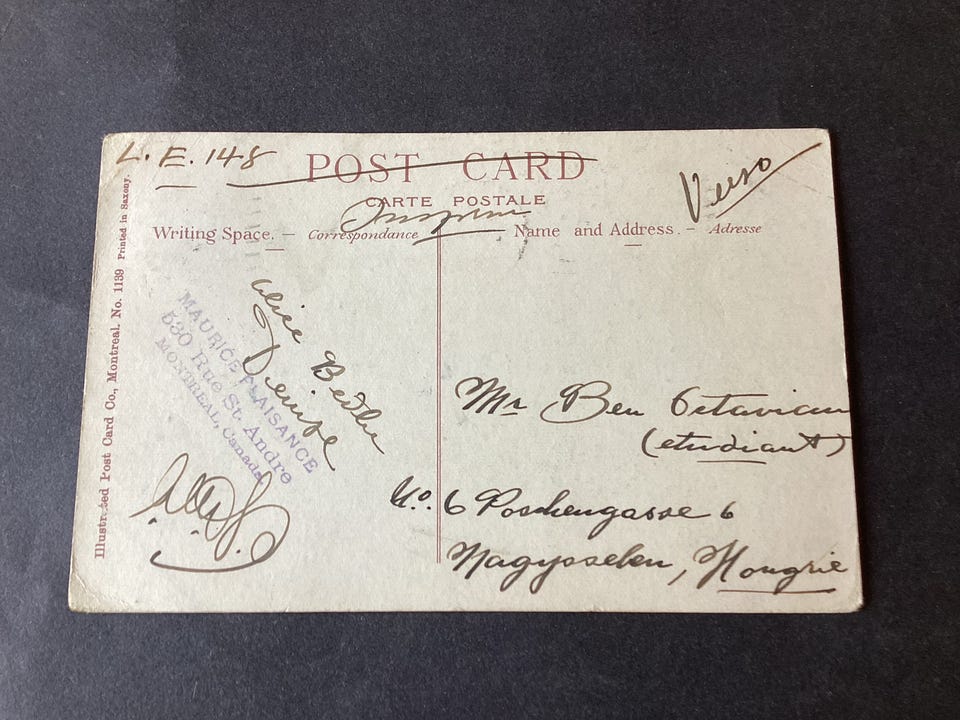 L. E. 148
POST CARD
Verso
CARTE POSTALE
Writing Space. — Correspondance
Name and Address. — Adresse
Illustrated Post Card Co., Montreal. No. 1139 Printed in Saxony.
MAURICE PLAISANCE
530 Rue St. Andre
MONTREAL, Canada
Alice
Denise
Mr Ben Octavian
(etudiant)
No. 6 Poschengasse 6
Nagysseben, Hongrie